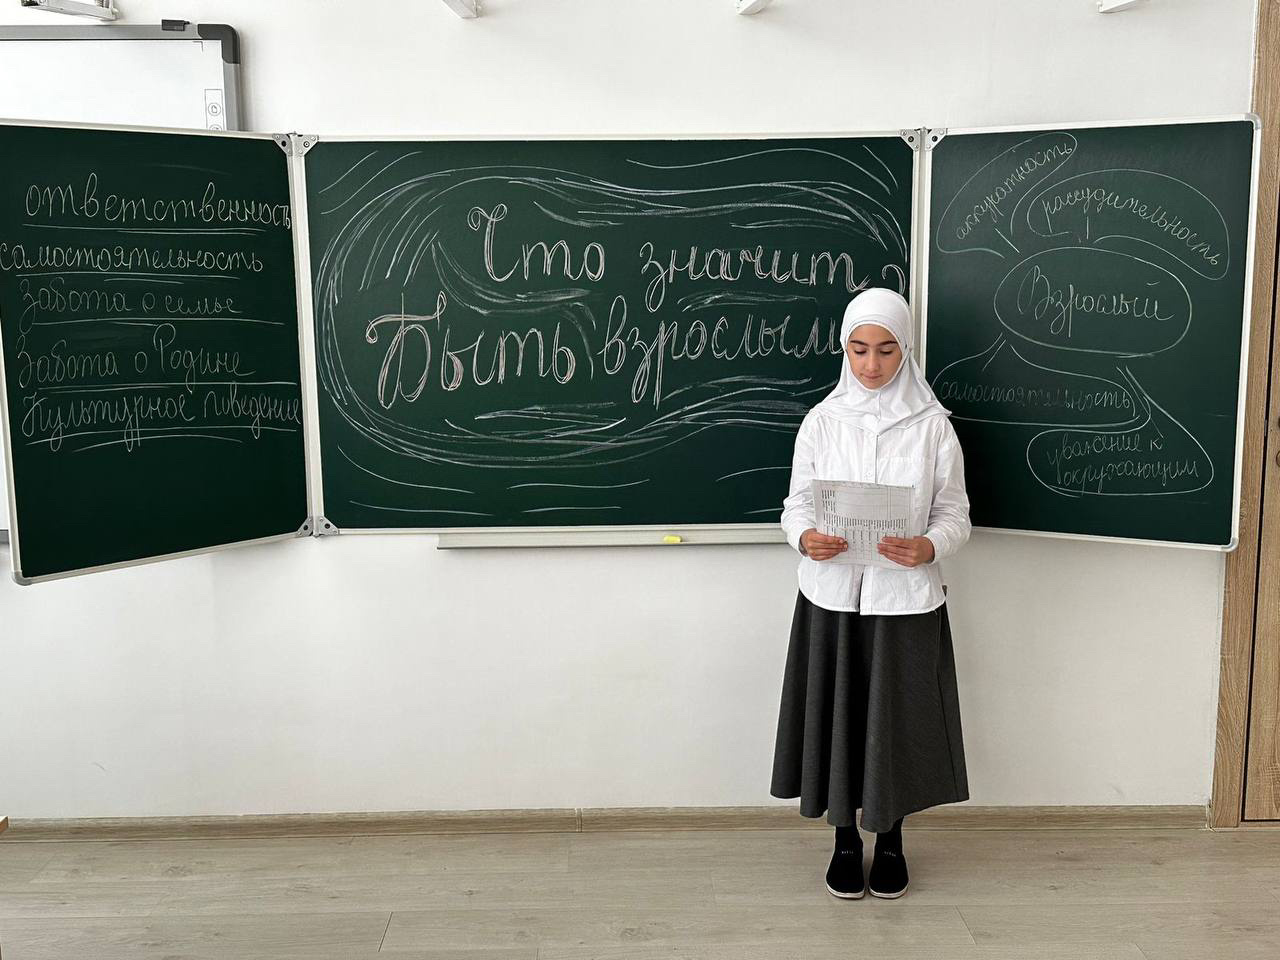 ответственность
самостоятельность
Забота о семье
Забота о Родине
Культурное поведение
Что значит
Быть взрослым
?
аккуратность
рассудительность
Взрослый
самостоятельность
уважение к
окружающим